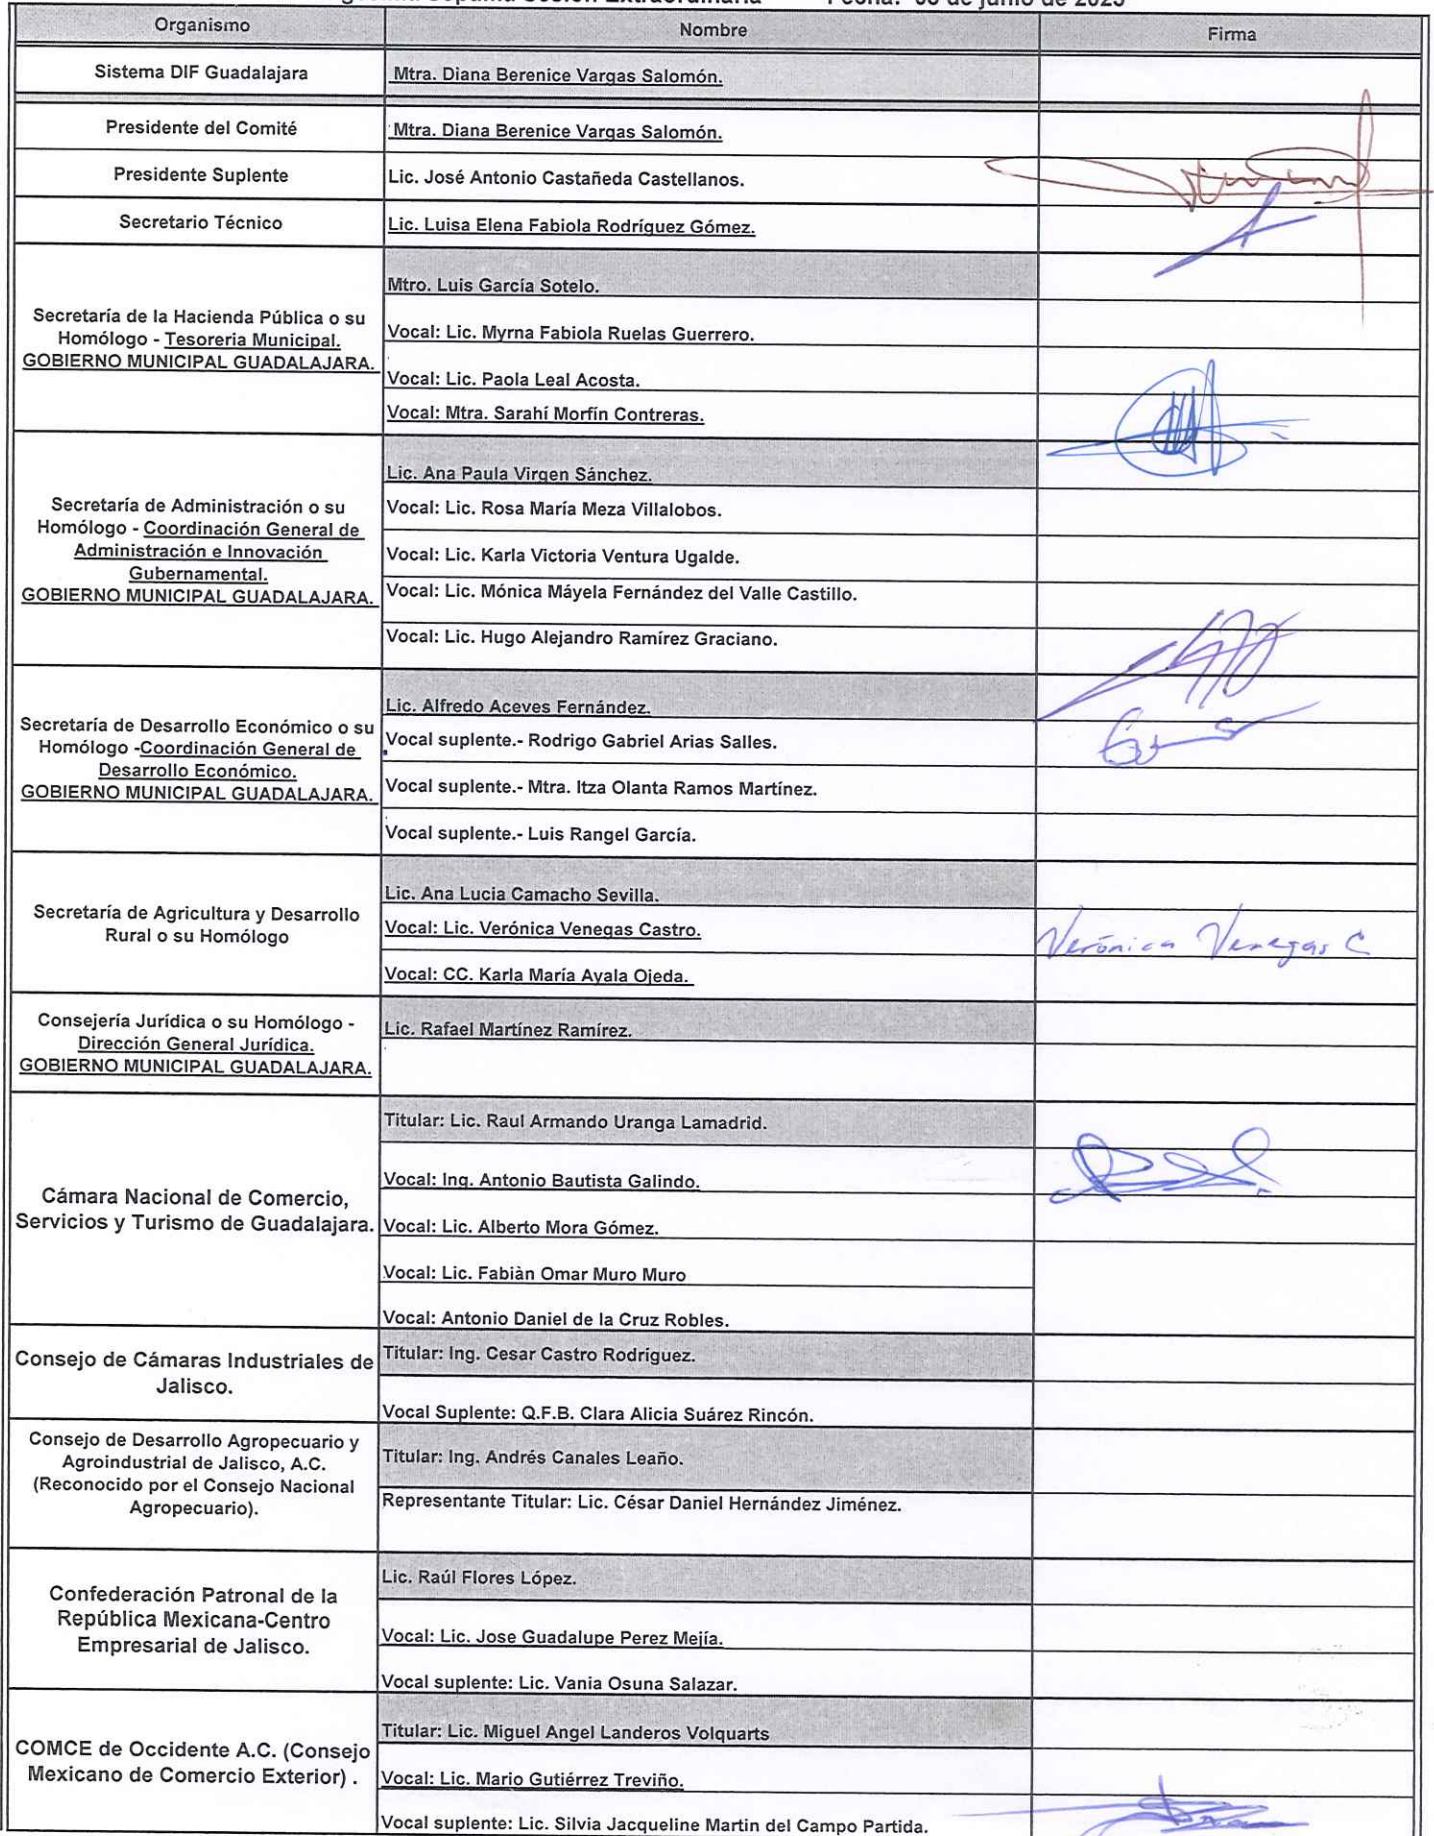 Séptima Sesión Extraordinaria Fecha: de junio de 2023
Organismo Nombre Firma
Sistema DIF Guadalajara Mtra. Diana Berenice Vargas Salomón.
Presidente del Comité Mtra. Diana Berenice Vargas Salomón.
Presidente Suplente Lic. José Antonio Castañeda Castellanos.
Secretario Técnico Lic. Luisa Elena Fabiola Rodríguez Gómez.
Secretaría de la Hacienda Pública o su
Homólogo - Tesoreria Municipal.
GOBIERNO MUNICIPAL GUADALAJARA.
Mtro. Luis García Sotelo.
Vocal: Lic. Myrna Fabiola Ruelas Guerrero.
Vocal: Lic. Paola Leal Acosta.
Vocal: Mtra. Sarahí Morfín Contreras.
Secretaría de Administración o su
Homólogo - Coordinación General de
Administración e Innovación
Gubernamental.
GOBIERNO MUNICIPAL GUADALAJARA.
Lic. Ana Paula Virgen Sánchez.
Vocal: Lic. Rosa María Meza Villalobos.
Vocal: Lic. Karla Victoria Ventura Ugalde.
Vocal: Lic. Mónica Máyela Fernández del Valle Castillo.
Vocal: Lic. Hugo Alejandro Ramírez Graciano.
Secretaría de Desarrollo Económico o su
Homólogo -Coordinación General de
Desarrollo Económico.
GOBIERNO MUNICIPAL GUADALAJARA.
Lic. Alfredo Aceves Fernández.
Vocal suplente.- Rodrigo Gabriel Arias Salles.
Vocal suplente.- Mtra. Itza Olanta Ramos Martínez.
Vocal suplente.- Luis Rangel García.
Secretaría de Agricultura y Desarrollo
Rural o su Homólogo
Lic. Ana Lucia Camacho Sevilla.
Vocal: Lic. Verónica Venegas Castro. Verónica Venegas C
Vocal: CC. Karla María Ayala Ojeda.
Consejería Jurídica o su Homólogo -
Dirección General Jurídica.
GOBIERNO MUNICIPAL GUADALAJARA.
Lic. Rafael Martínez Ramírez.
Cámara Nacional de Comercio,
Servicios y Turismo de Guadalajara.
Titular: Lic. Raul Armando Uranga Lamadrid.
Vocal: Ing. Antonio Bautista Galindo.
Vocal: Lic. Alberto Mora Gómez.
Vocal: Lic. Fabiàn Omar Muro Muro
Vocal: Antonio Daniel de la Cruz Robles.
Consejo de Cámaras Industriales de
Jalisco.
Titular: Ing. Cesar Castro Rodríguez.
Vocal Suplente: Q.F.B. Clara Alicia Suárez Rincón.
Consejo de Desarrollo Agropecuario y
Agroindustrial de Jalisco, A.C.
(Reconocido por el Consejo Nacional
Agropecuario).
Titular: Ing. Andrés Canales Leaño.
Representante Titular: Lic. César Daniel Hernández Jiménez.
Confederación Patronal de la
República Mexicana-Centro
Empresarial de Jalisco.
Lic. Raúl Flores López.
Vocal: Lic. Jose Guadalupe Perez Mejía.
Vocal suplente: Lic. Vania Osuna Salazar.
COMCE de Occidente A.C. (Consejo
Mexicano de Comercio Exterior) .
Titular: Lic. Miguel Angel Landeros Volquarts
Vocal: Lic. Mario Gutiérrez Treviño.
Vocal suplente: Lic. Silvia Jacqueline Martin del Campo Partida.